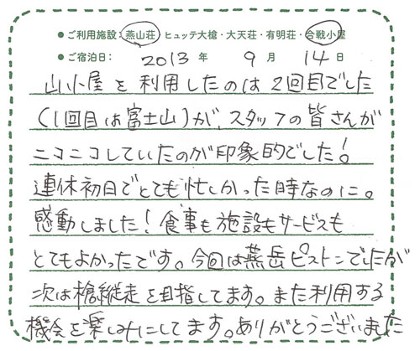 ●ご利用施設:燕山荘・ヒュッテ大槍・大天荘・有明荘・合戦小屋
●ご宿泊日: 2013 年 9 月 14 日
山小屋を利用したのは2回目でした
(1回目は富士山)が、スタッフの皆さんが
ニコニコしていたのが印象的でした!
連休初日でとても忙しかった時なのに。
感動しました!食事も施設もサービスも
とてもよかったです。今回は燕岳ピストンでしたが
次は槍縦走を目指してます。また利用する
機会を楽しみにしてます。ありがとうございました